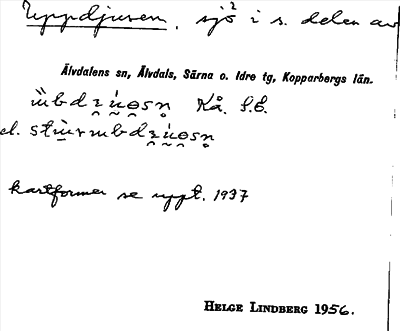 Uppdjusen, sjö² i s. delen av
Älvdalens sn, Älvdals, Särna o. Idre tg, Kopparbergs län.
Kå. f.b.
el.
kartformer se uppt. 1937
HELGE LINDBERG 1956.